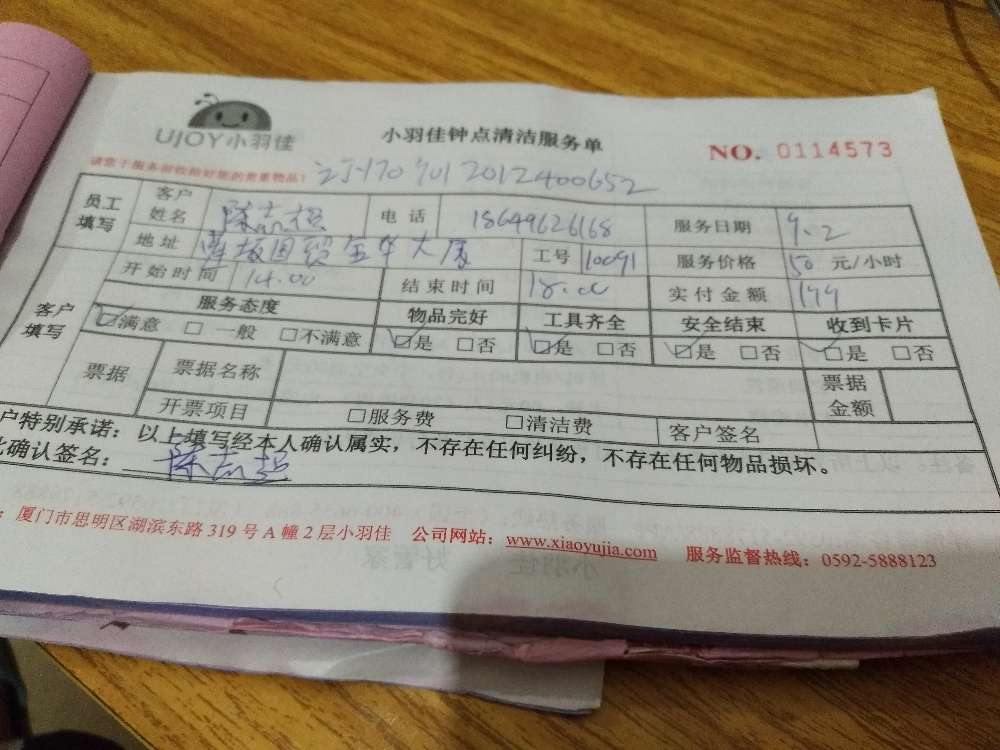 UJOY小羽佳
小羽佳钟点清洁服务单
NO. 0114573
请您于服务前收拾好您的贵重物品!
员工填写 客户姓名 陈志超 电话 18649626168 服务日期 9.2
地址 国贸金华大厦 工号 10091 服务价格 50 元/小时
客户填写 开始时间 14.00 结束时间 18.00 实付金额 199
服务态度 物品完好 工具齐全 安全结束 收到卡片
☑满意 □一般 □不满意 ☑是 □否 ☑是 □否 ☑是 □否 ☑是 □否
票据 票据名称 票据金额
开票项目 □服务费 □清洁费 客户签名
户特别承诺：以上填写经本人确认属实，不存在任何纠纷，不存在任何物品损坏。
确认签名： 陈志超
：厦门市思明区湖滨东路 319 号 A 幢 2 层小羽佳 公司网站：www.xiaoyujia.com 服务监督热线：0592-5888123